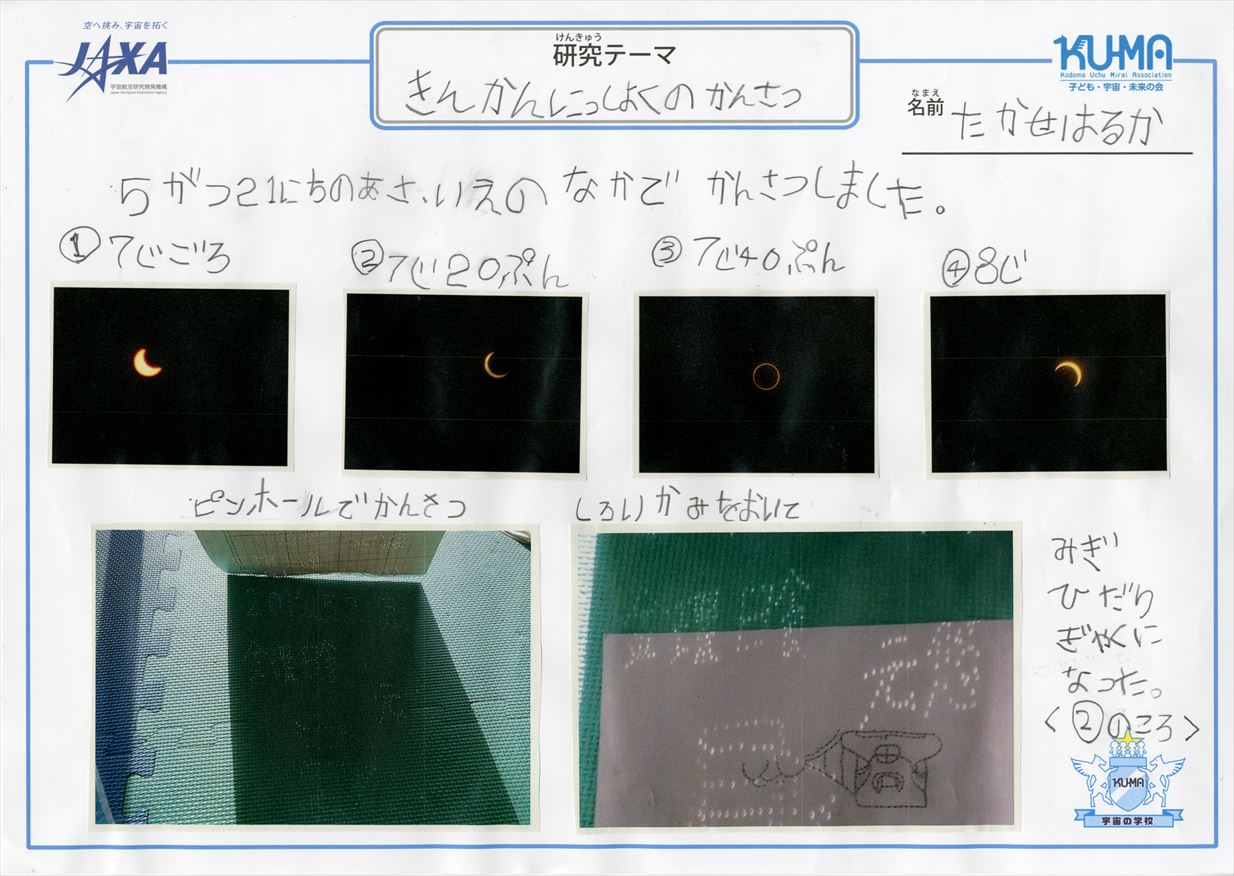 空へ挑み、宇宙を拓く
JAXA
宇宙航空研究開発機構
Japan Aerospace Exploration Agency
けんきゅう
研究テーマ
きんかんにっしょくのかんさつ
KU-MA
Kodomo Uchu Mirai Association
子ども・宇宙・未来の会
なまえ
名前 たかせはるか
5がつ21にちのあさ、いえのなかでかんさつしました。
①7じごろ
②7じ20ぷん
③7じ40ぷん
④8じ
ピンホールでかんさつ
しろいかみをおいて
みぎ
ひだり
ぎゃくに
なった。
<②のころ>
KUMA
宇宙の学校